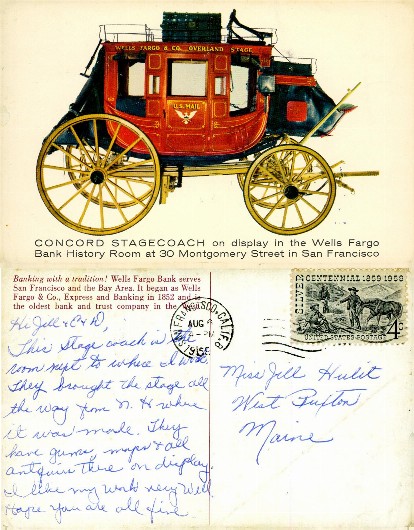 WELLS FARGO & CO. OVERLAND STAGE
U.S. MAIL
CONCORD STAGECOACH on display in the Wells Fargo
Bank History Room at 30 Montgomery Street in San Francisco
Banking with a tradition! Wells Fargo Bank serves
San Francisco and the Bay Area. It began as Wells
Fargo & Co., Express and Banking in 1852 and is
the oldest bank and trust company in the
SAN FRANCISCO, CALIF.
AUG
SILVER CENTENNIAL 1859-1959
UNITED STATES POSTAGE
4¢
Hi Jill &
This stage coach is in the
room next to where I work.
They brought the stage all
the way from N. H where
it was made. They
have guns, maps & all
antiques there on display.
I like my work very well
Hope you are all fine.
Miss Jill Hulit
West Buxton
Maine